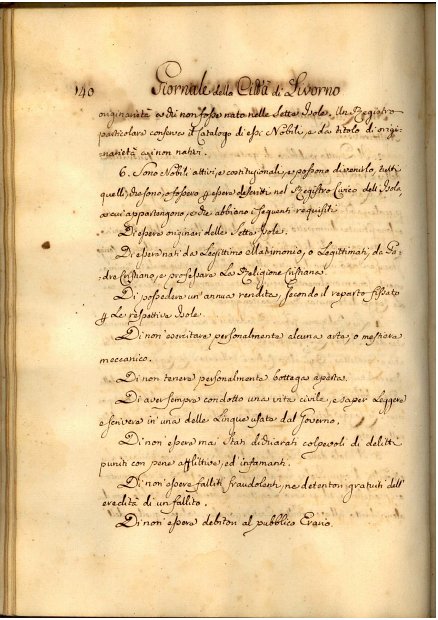 140 Giornale della Città di Livorno
originarietà a chi non fosse nato nelle Sette Isole. Un Registro
particolare conserva il Catalogo di essi Nobili, e da titolo di origi-
narietà ai non nativi.
6. Sono Nobili attivi, e costituzionali, e possono divenirlo, tutti
quelli, che sono, o fossero p essere descritti nel Registro Civico dell'Isola,
a cui appartengono, e che abbiano i seguenti requisiti.
Di essere originari delle Sette Isole.
Di esser nati da Legittimo Matrimonio, o Legittimati, da Pa-
dre Cristiano, e professare La Religione Cristiana.
Di possedere un'annua rendita, secondo il reparto fissato
p Le respettive Isole.
Di non esercitare personalmente alcuna arte, o mestiere
meccanico.
Di non tenere personalmente bottega aperta.
Di aver sempre condotto una vita civile, e saper Leggere
e scrivere in una delle Lingue usate dal Governo.
Di non essere mai stati dichiarati colpevoli di delitti
puniti con pene afflittive, ed infamanti.
Di non essere falliti fraudolenti, ne detentori gratuiti dell'
eredità di un fallito.
Di non essere debitori al pubblico Erario.